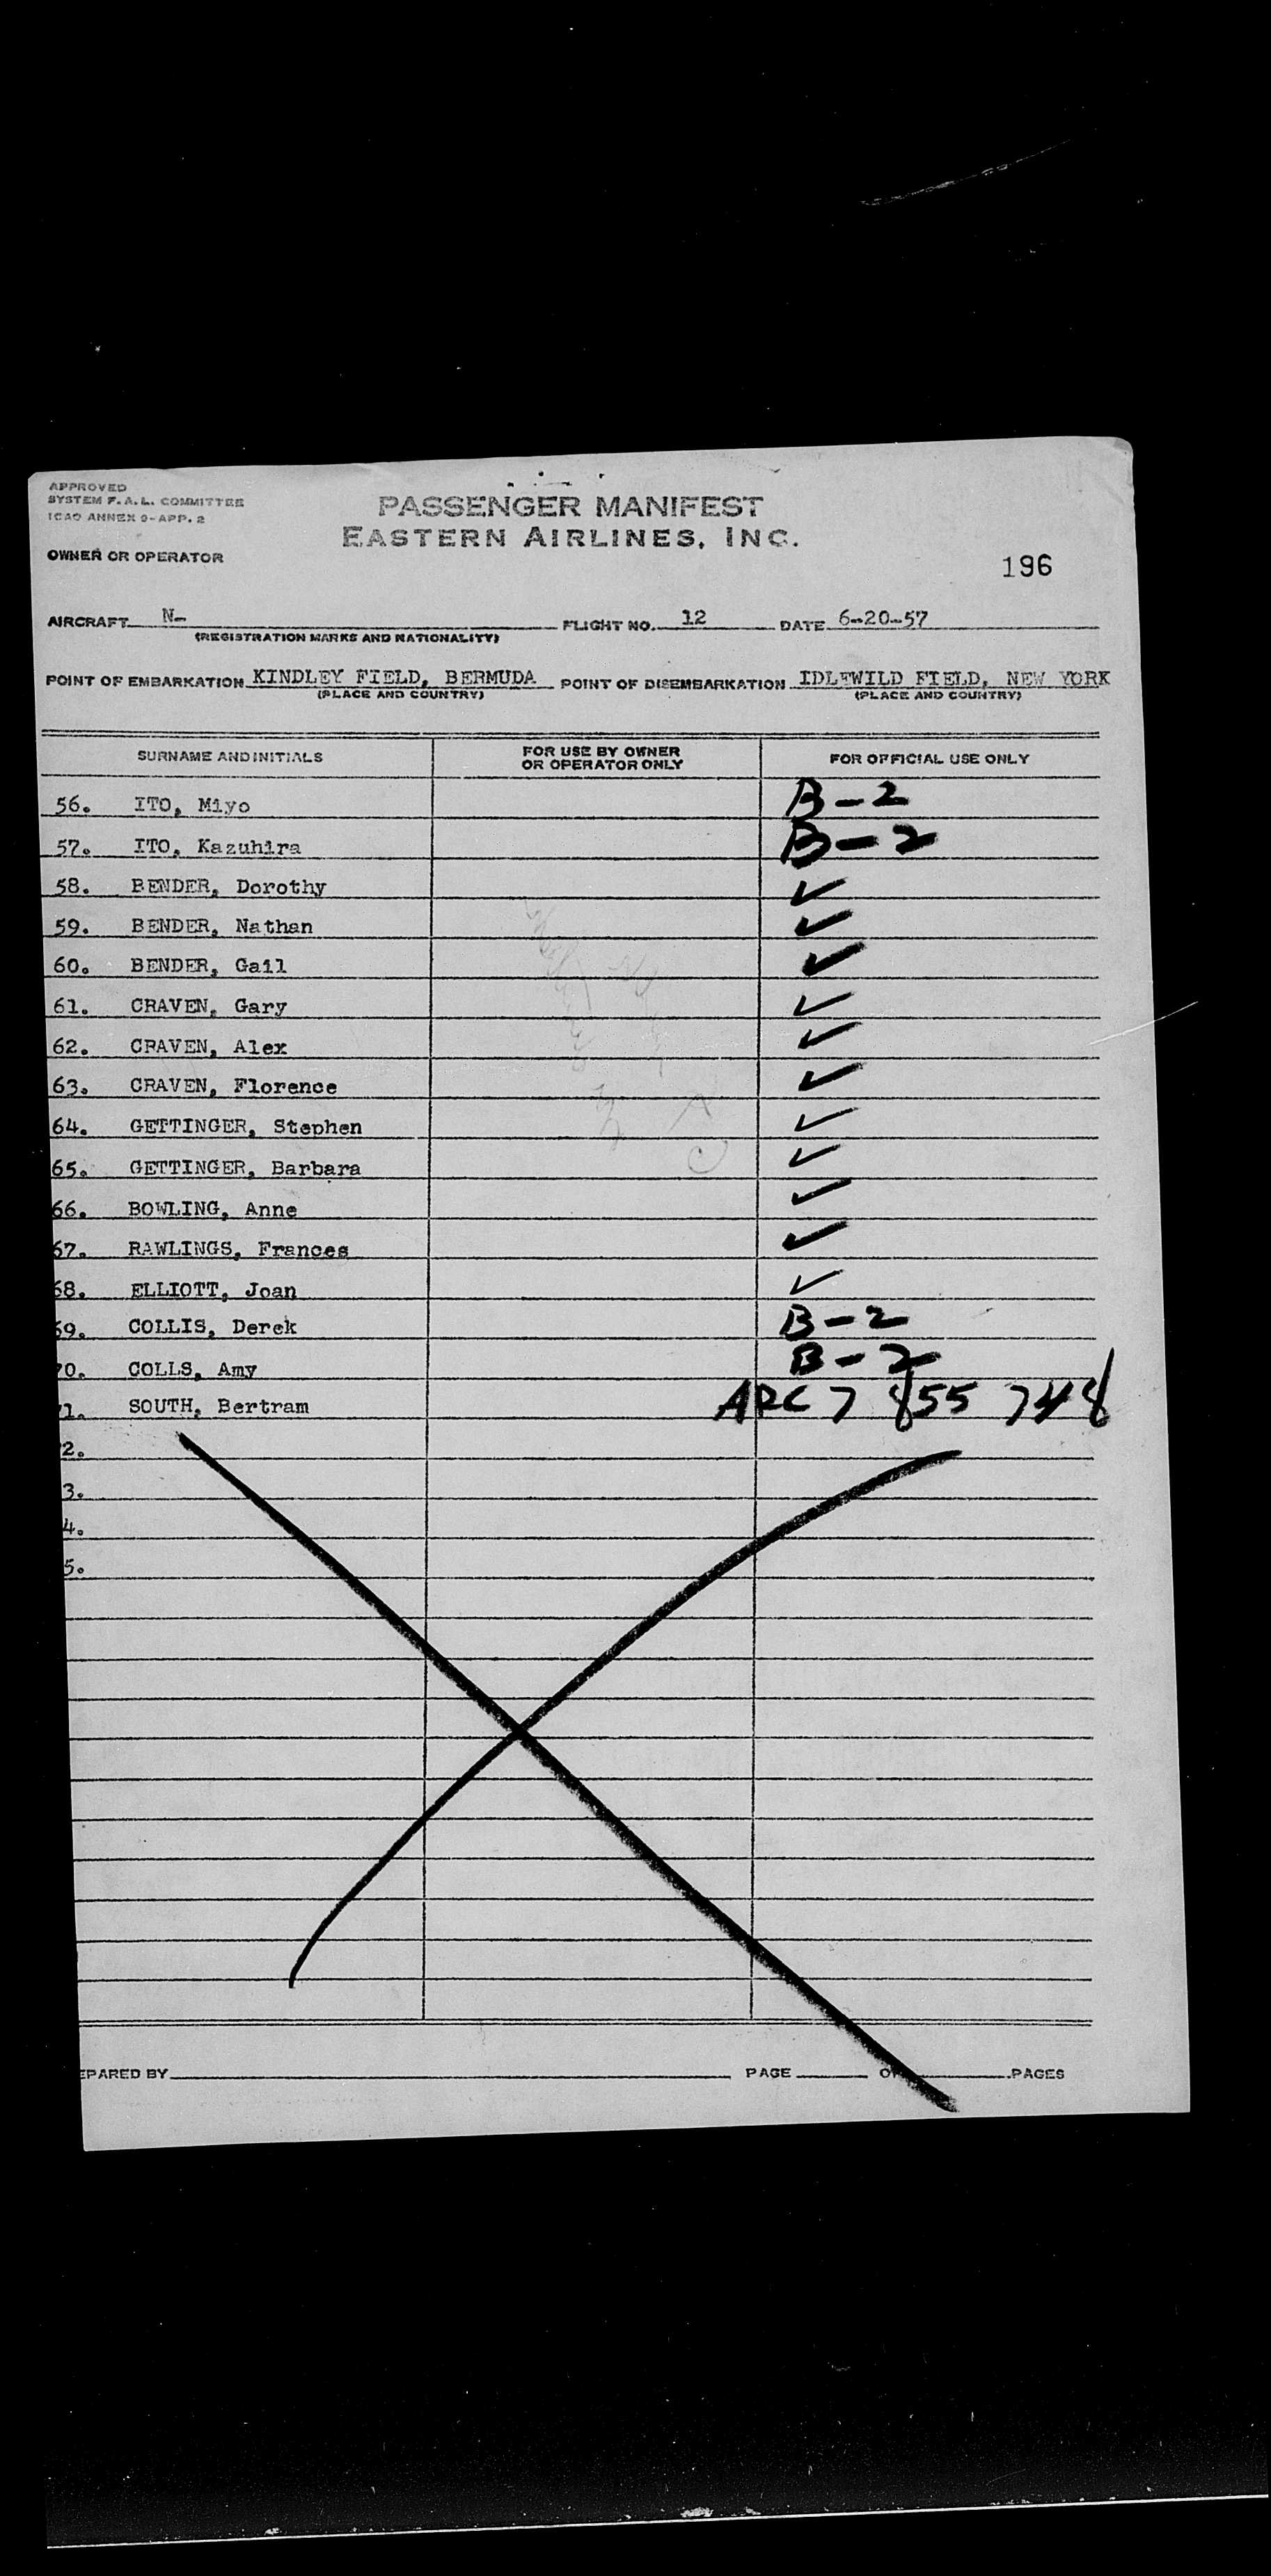 APPROVED
SYSTEM F.A.L. COMMITTEE
ICAO ANNEX 9-APP. 2
PASSENGER MANIFEST
EASTERN AIRLINES, INC.
OWNER OR OPERATOR
196
AIRCRAFT N- FLIGHT NO. 12 DATE 6-20-57
(REGISTRATION MARKS AND NATIONALITY)
POINT OF EMBARKATION KINDLEY FIELD, BERMUDA POINT OF DISEMBARKATION IDLEWILD FIELD, NEW YORK
(PLACE AND COUNTRY) (PLACE AND COUNTRY)
SURNAME AND INITIALS FOR USE BY OWNER OR OPERATOR ONLY FOR OFFICIAL USE ONLY
56. ITO, Miyo B-2
57. ITO, Kazuhira B-2
58. BENDER, Dorothy ✓
59. BENDER, Nathan ✓
60. BENDER, Gail ✓
61. CRAVEN, Gary ✓
62. CRAVEN, Alex ✓
63. CRAVEN, Florence ✓
64. GETTINGER, Stephen ✓
65. GETTINGER, Barbara ✓
66. BOWLING, Anne ✓
67. RAWLINGS, Frances ✓
68. ELLIOTT, Joan ✓
69. COLLIS, Derek B-2
70. COLLS, Amy B-2
71. SOUTH, Bertram ARC 7 855 748
2.
3.
4.
5.
EPARED BY PAGE OF PAGES